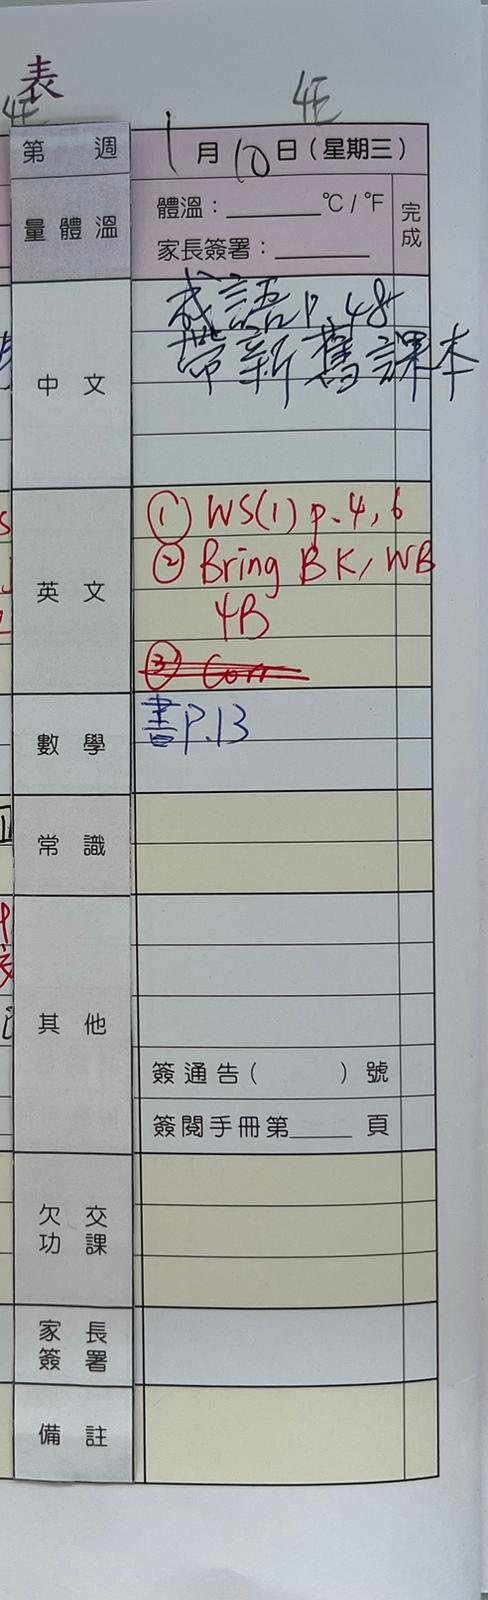 表
4E
4E
第 週
1月10日(星期三)
量體溫
體溫:______°C/°F
家長簽署:______
完成
中文
成語P.48
帶新舊課本
英文
① WS(1) p.4,6
② Bring BK, WB
4B
③ Corr
數學
書P.13
常識
其他
簽通告( )號
簽閱手冊第____頁
欠交
功課
家長
簽署
備註